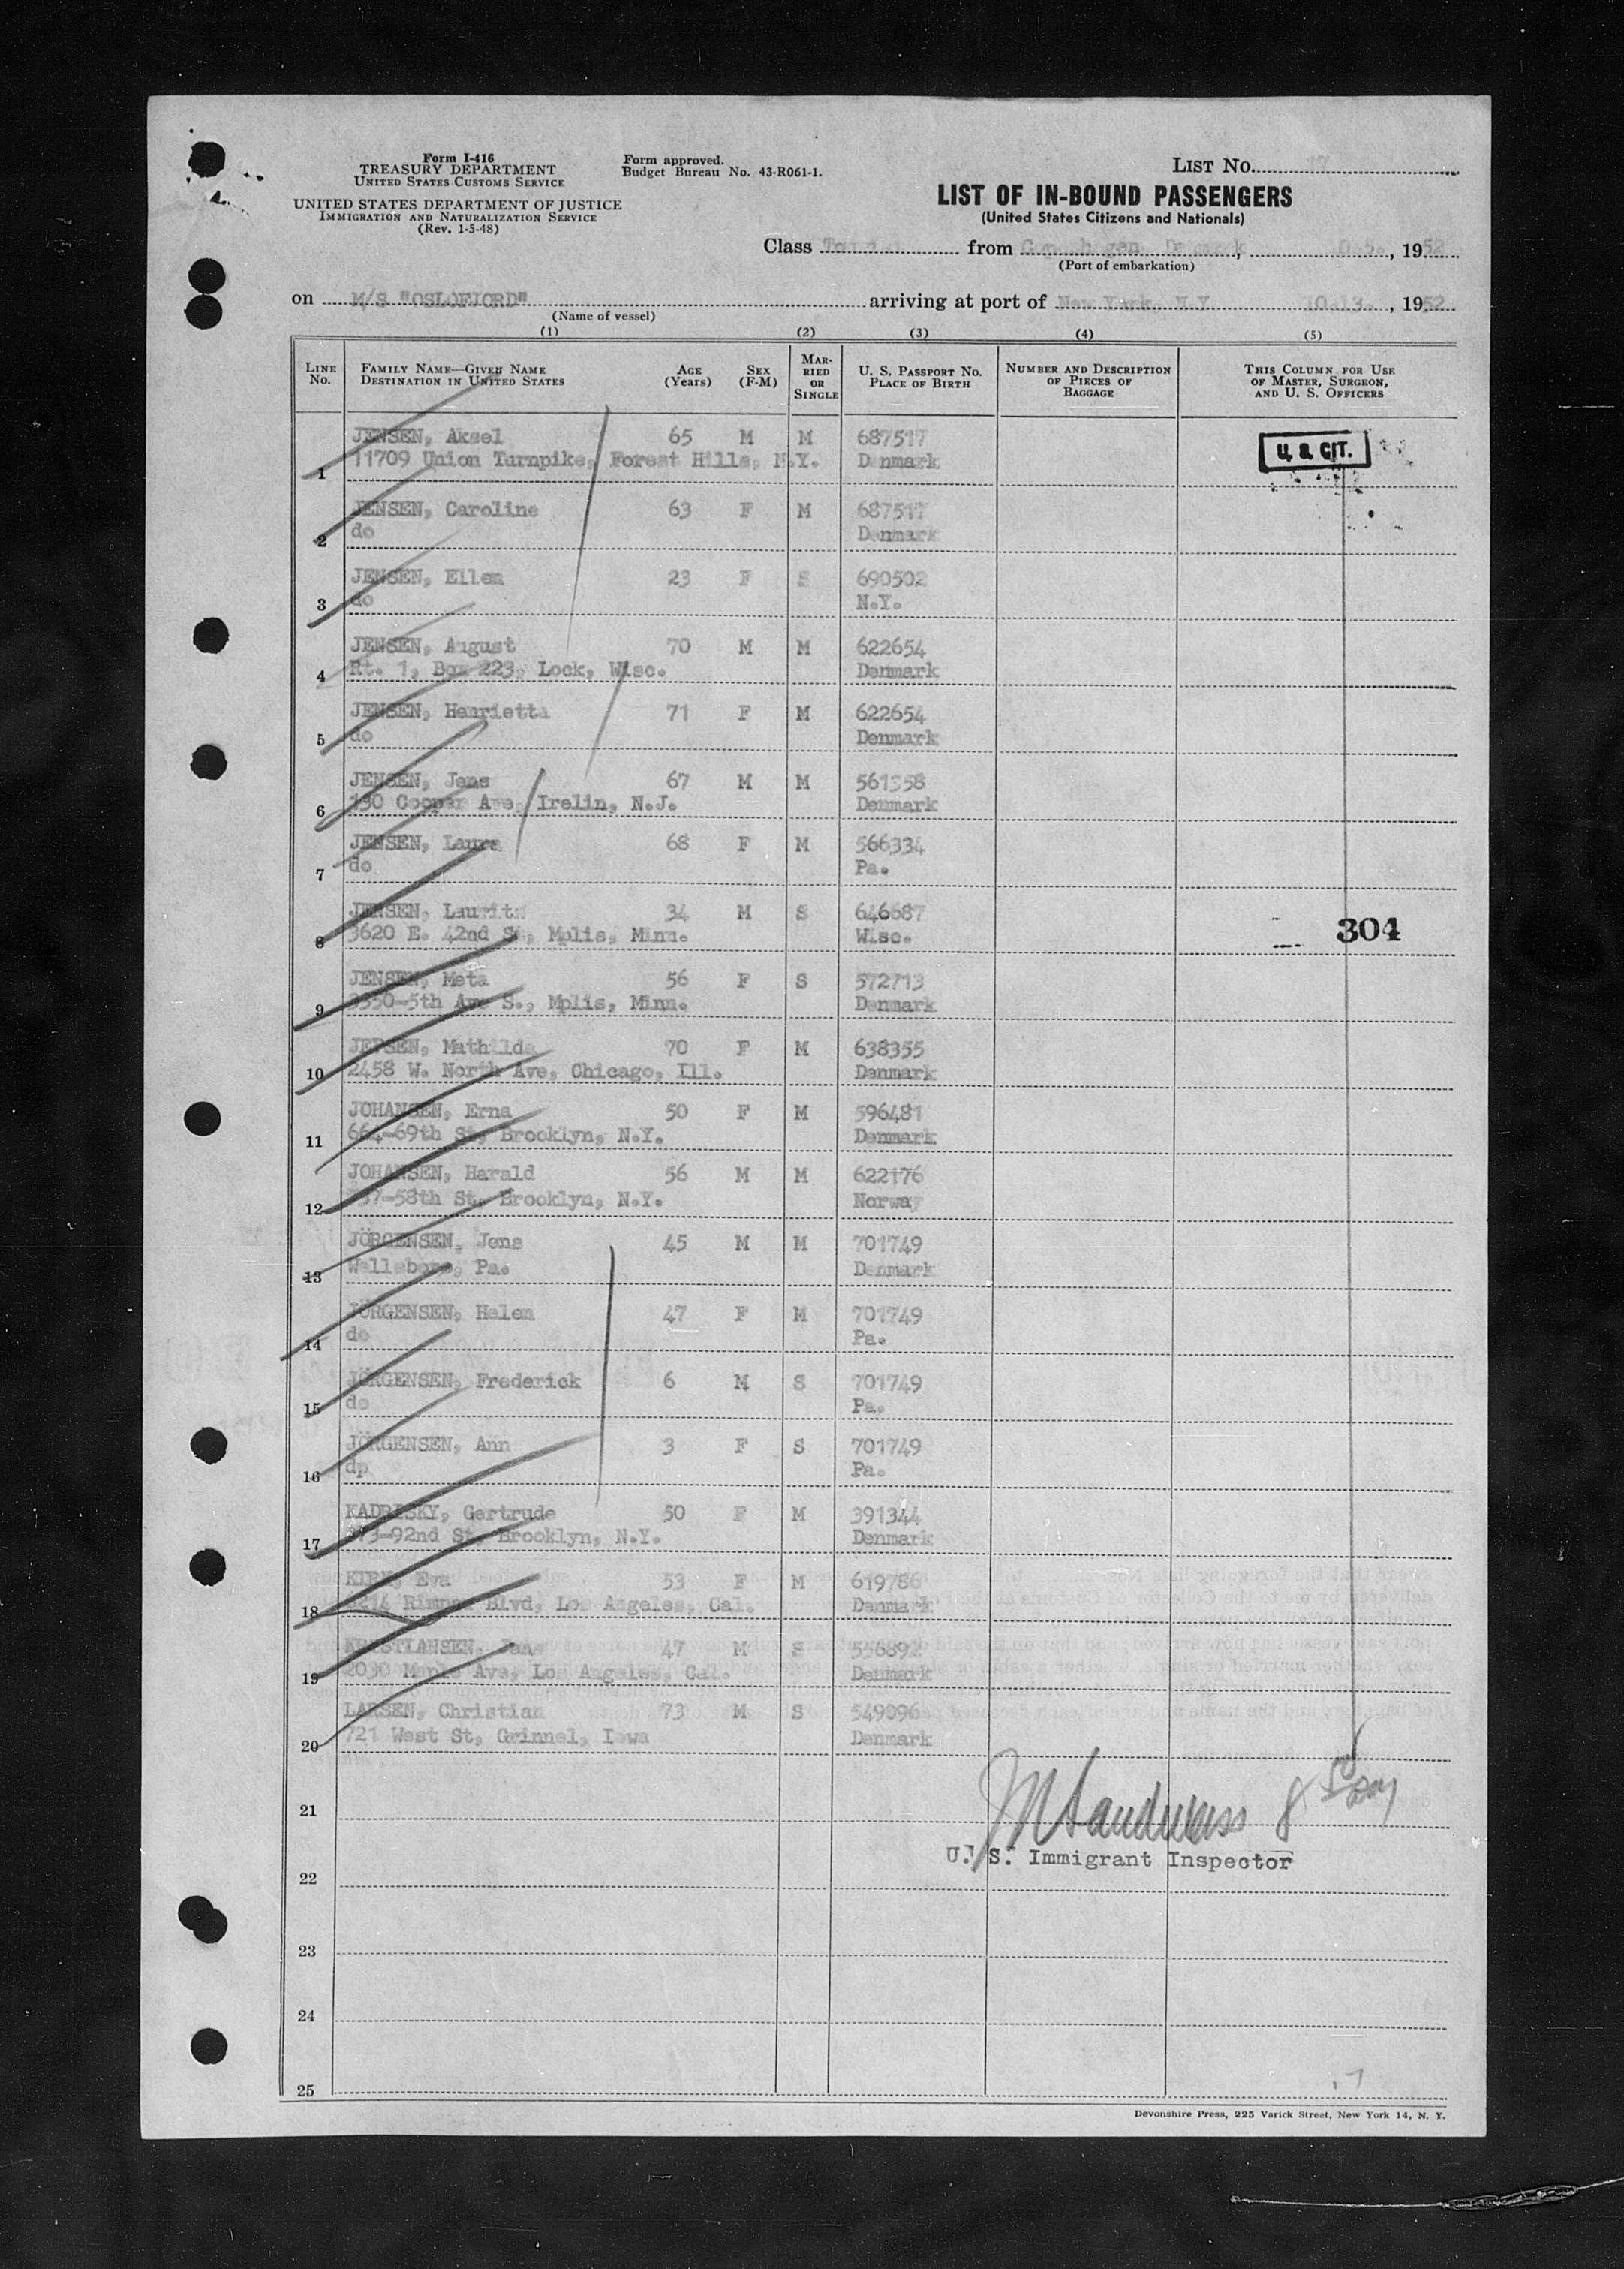 Form I-416
TREASURY DEPARTMENT
UNITED STATES CUSTOMS SERVICE
UNITED STATES DEPARTMENT OF JUSTICE
IMMIGRATION AND NATURALIZATION SERVICE
(Rev. 1-5-48)
Form approved.
Budget Bureau No. 43-R061-1.
LIST No. 17
LIST OF IN-BOUND PASSENGERS
(United States Citizens and Nationals)
Class Tourist from Copenhagen, Denmark, 10.5., 1952
(Port of embarkation)
on M/S "OSLOFJORD" arriving at port of New York, N.Y. 10.13., 1952
(Name of vessel)
(1) (2) (3) (4) (5)
LINE No. FAMILY NAME—GIVEN NAME DESTINATION IN UNITED STATES AGE (Years) SEX (F-M) MARRIED OR SINGLE U. S. PASSPORT NO. PLACE OF BIRTH NUMBER AND DESCRIPTION OF PIECES OF BAGGAGE THIS COLUMN FOR USE OF MASTER, SURGEON, AND U. S. OFFICERS
JENSEN, Aksel 65 M M 687517 U. S. CIT.
1 11709 Union Turnpike, Forest Hills, N.Y. Denmark
JENSEN, Caroline 63 F M 687517
2 do Denmark
JENSEN, Ellen 23 F S 690502
3 do N.Y.
JENSEN, August 70 M M 622654
4 Rt. 1, Box 223, Lock, Wisc. Denmark
JENSEN, Henrietta 71 F M 622654
5 do Denmark
JENSEN, Jens 67 M M 561358
6 130 Cooper Ave, Irelin, N.J. Denmark
JENSEN, Laura 68 F M 566334
7 do Pa.
JENSEN, Laurits 34 M S 646687
8 3620 E. 42nd St, Mplis, Minn. Wisc. 304
JENSEN, Meta 56 F S 572713
9 3350-5th Ave S., Mplis, Minn. Denmark
JEPSEN, Mathilda 70 F M 638355
10 2458 W. North Ave, Chicago, Ill. Denmark
JOHANSEN, Erna 50 F M 596481
11 664-69th St, Brooklyn, N.Y. Denmark
JOHANSEN, Harald 56 M M 622176
12 37-58th St, Brooklyn, N.Y. Norway
JÖRGENSEN, Jens 45 M M 701749
13 Wellsboro, Pa. Denmark
JÖRGENSEN, Helen 47 F M 701749
14 do Pa.
JÖRGENSEN, Frederick 6 M S 701749
15 do Pa.
JÖRGENSEN, Ann 3 F S 701749
16 dp Pa.
KADRESKY, Gertrude 50 F M 391344
17 373-92nd St, Brooklyn, N.Y. Denmark
KIRK, Eva 53 F M 619786
18 Blvd, Los Angeles, Cal. Denmark
KRISTIANSEN, Jens 47 M S 556892
19 2030 Maple Ave, Los Angeles, Cal. Denmark
LARSEN, Christian 73 M S 549996
20 721 West St, Grinnel, Iowa Denmark
21
U. S. Immigrant Inspector
22
23
24
25
Devonshire Press, 225 Varick Street, New York 14, N. Y.